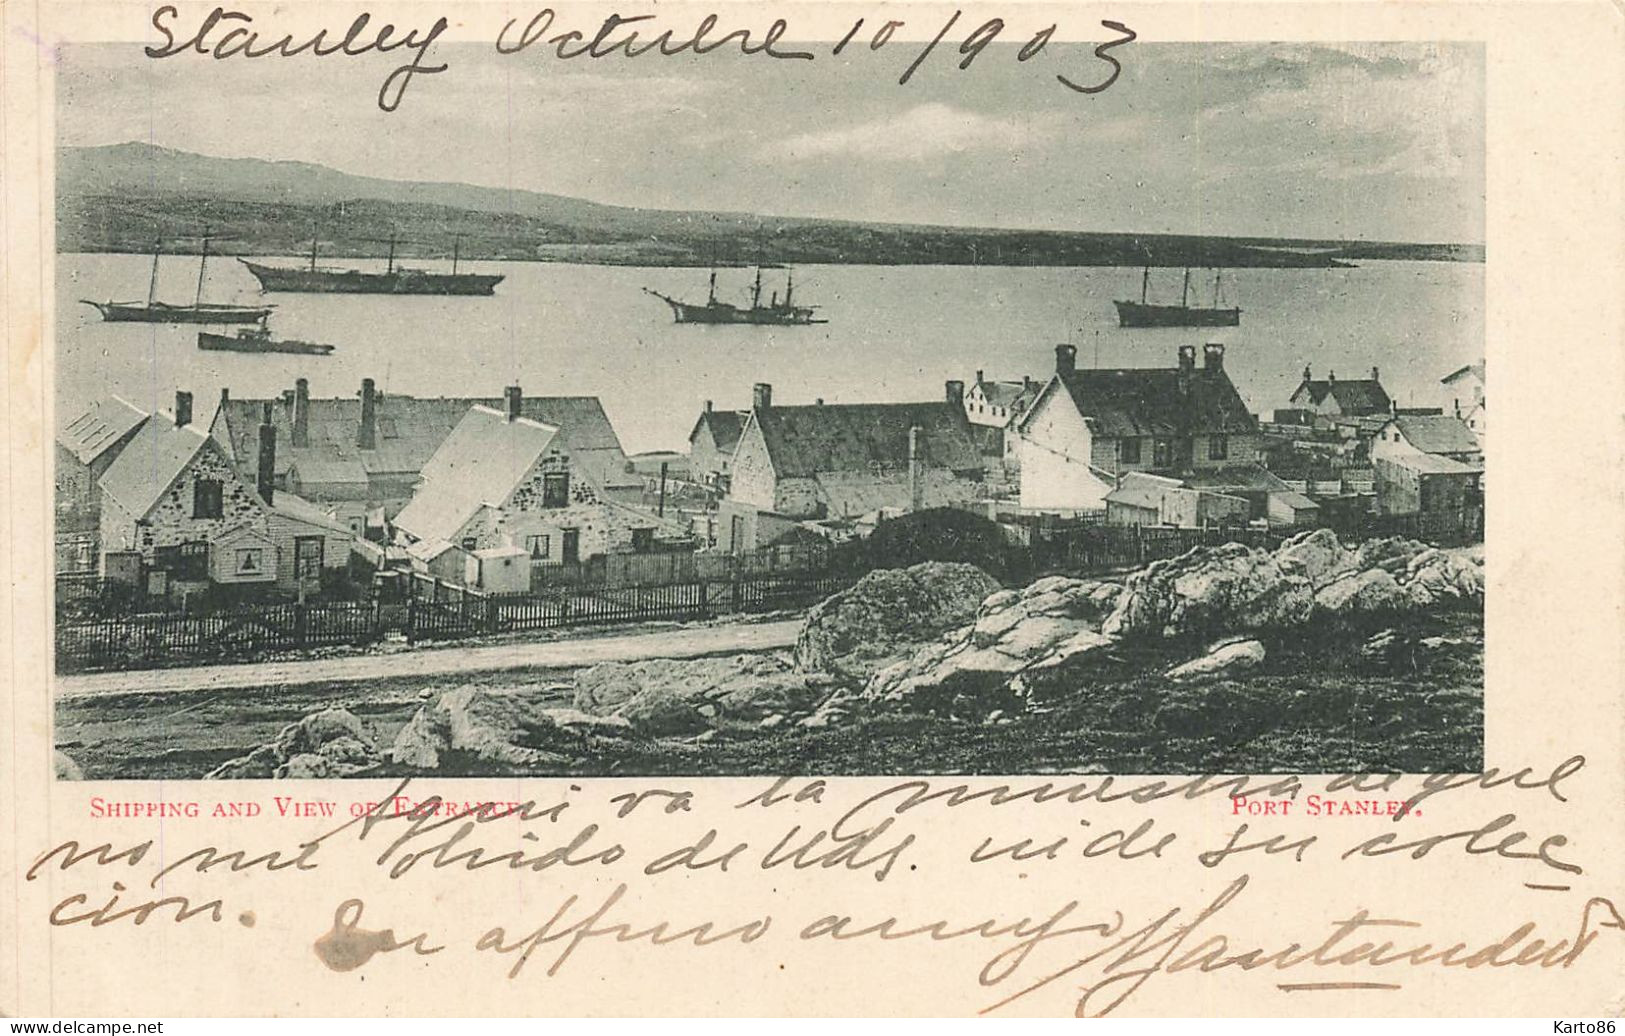 Stanley Octubre 10/903
SHIPPING AND VIEW OF ENTRANCE.
PORT STANLEY.
Aqui va la muestra de que
no me olvido de Uds. ni de su colec
cion.
Su affmo amigo
www.delcampe.net
Karto86